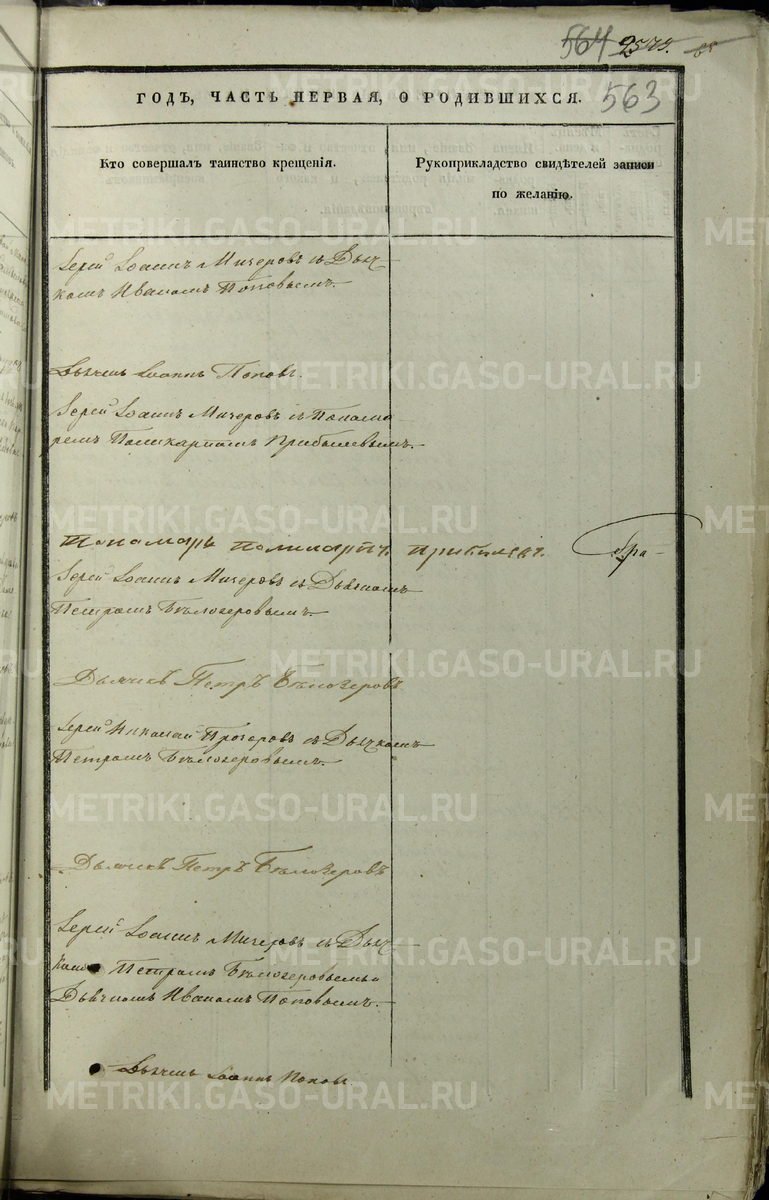 564 2575.
563
ГОДЪ, ЧАСТЬ ПЕРВАЯ, О РОДИВШИХСЯ.
Кто совершалъ таинство крещенія.
Рукоприкладство свидѣтелей записи
по желанію.
Іерей Іоаннъ Мичеровъ съ Дьяч-
комъ Иваномъ Поповымъ.
Дьячекъ Іоаннъ Поповъ.
Іерей Іоаннъ Мичеровъ съ Понома-
ремъ Поликарпомъ Прибылевымъ.
Пономарь Поликарпъ Прибылевъ.
Іерей Іоаннъ Мичеровъ съ Дьячкомъ
Петромъ Бѣлозеровымъ.
Дьячикъ Петръ Бѣлозеровъ
Іерей Николай съ Дьячкомъ
Петромъ Бѣлозеровымъ.
Дьячикъ Петръ Бѣлозеровъ
Іерей Іоаннъ Мичеровъ съ Дьяч-
комъ Петромъ Бѣлозеровымъ и
Дьячкомъ Иваномъ Поповымъ.
Дьячекъ Іоаннъ Поповъ.
METRIKI.GASO-URAL.RU